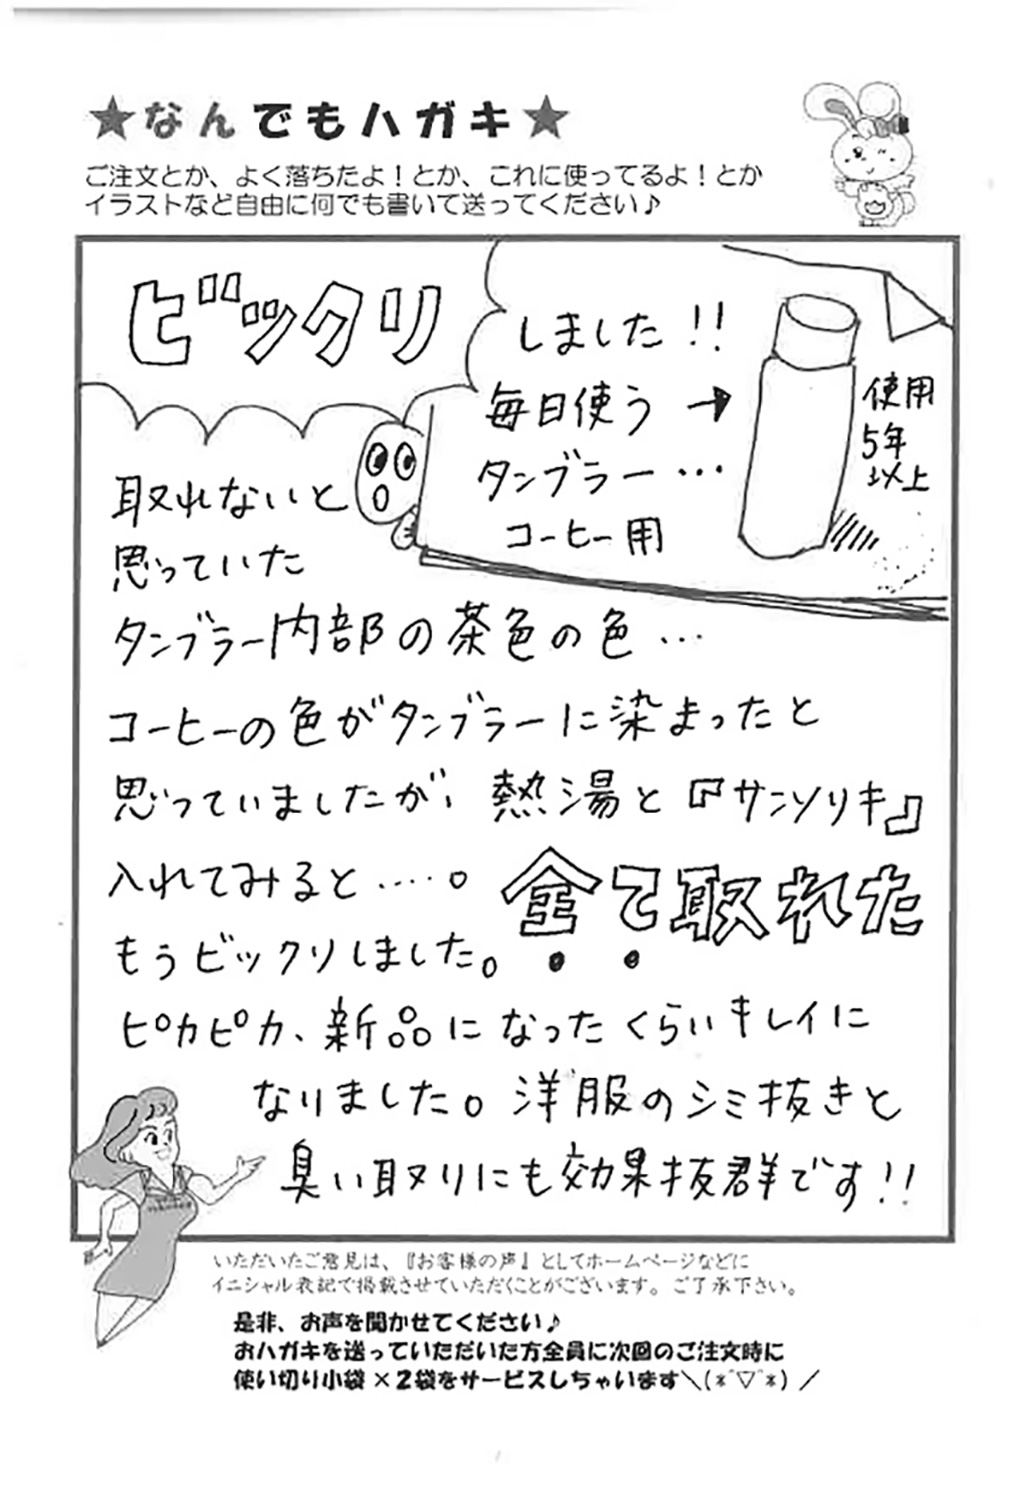 ★なんでもハガキ★
ご注文とか、よく落ちたよ！とか、これに使ってるよ！とか
イラストなど自由に何でも書いて送ってください♪
ビックリ
しました!!
毎日使う →
タンブラー…
コーヒー用
使用
5年
以上
取れないと
思っていた
タンブラー内部の茶色の色…
コーヒーの色がタンブラーに染まったと
思っていましたが、熱湯と『サンソリキ』
入れてみると….。全て取れた
もうビックリしました。
ピカピカ、新品になったくらいキレイに
なりました。洋服のシミ抜きと
臭い取りにも効果抜群です!!
いただいたご意見は、『お客様の声』としてホームページなどに
イニシャル表記で掲載させていただくことがございます。ご了承下さい。
是非、お声を聞かせてください♪
おハガキを送っていただいた方全員に次回のご注文時に
使い切り小袋×2袋をサービスしちゃいます＼(*ˆ▽ˆ*)／